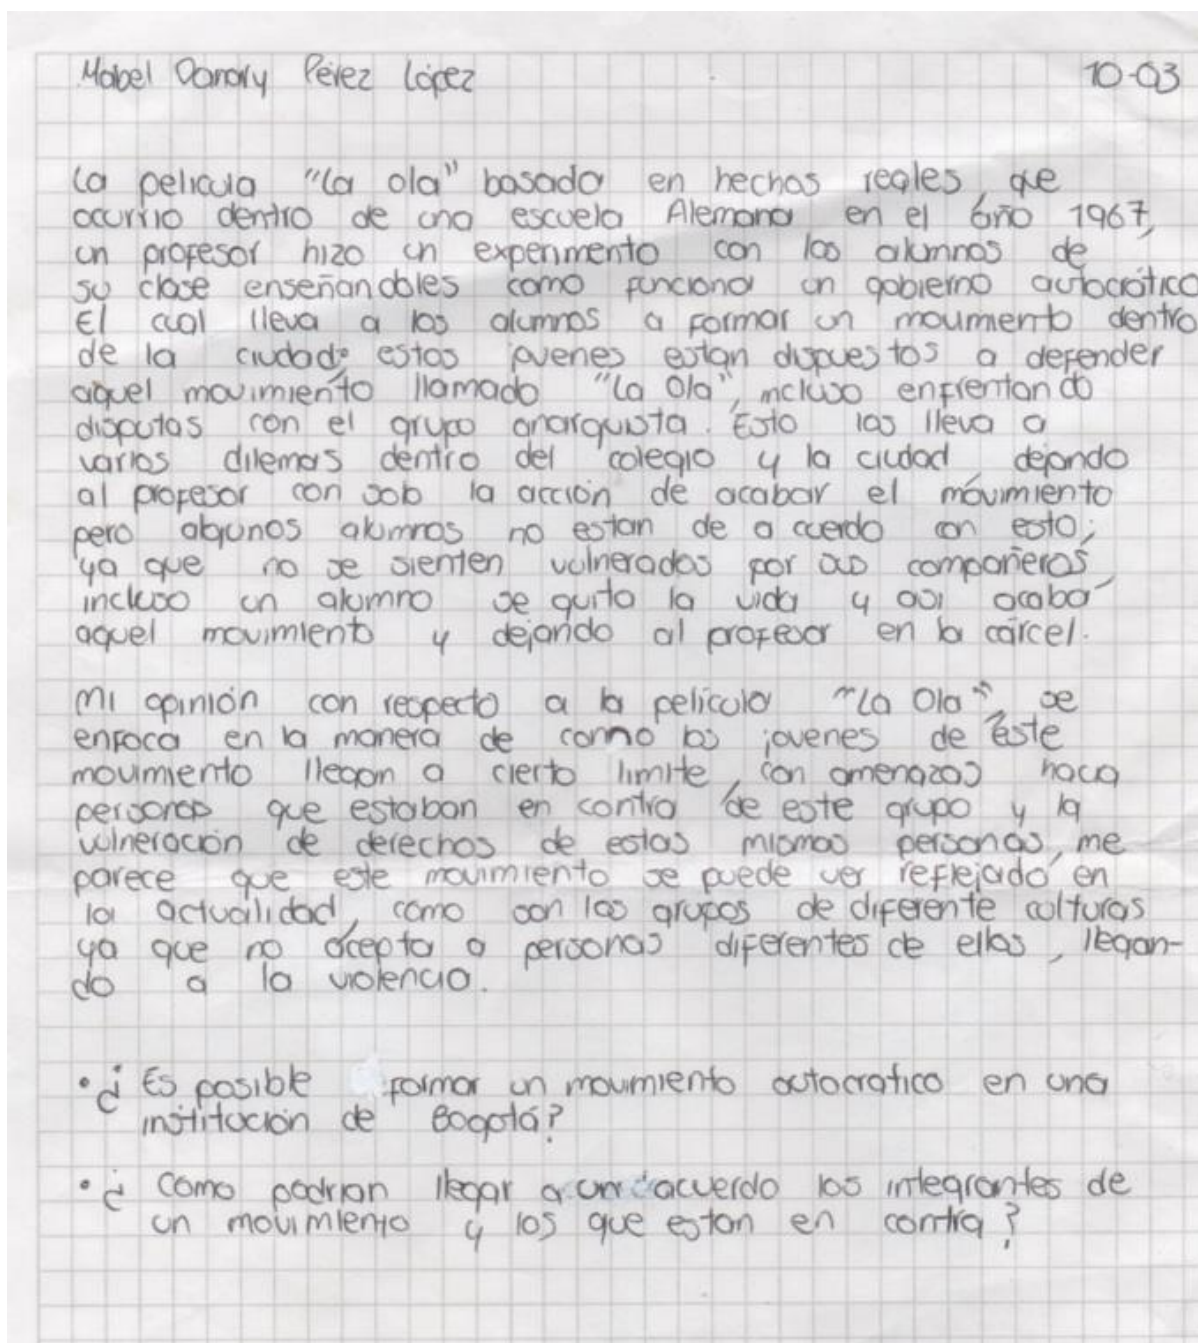 Mabel Danary Pérez López 10-03
La pelicula "La ola" basada en hechos reales, que
ocurrio dentro de una escuela Alemana en el año 1967,
un profesor hizo un experimento con los alumnos de
su clase enseñandoles como funciona un gobierno autocrático
El cual lleva a los alumnos a formar un movimiento dentro
de la ciudad, estos jovenes estan dispuestos a defender
aquel movimiento llamado "La Ola", incluso enfrentando
disputas con el grupo anarquista. Esto los lleva a
varios dilemas dentro del colegio y la ciudad, dejando
al profesor con solo la acción de acabar el movimiento
pero algunos alumnos no estan de a cuerdo con esto,
ya que no se sienten vulnerados por sus compañeros,
incluso un alumno se quito la vida y asi acabá
aquel movimiento y dejando al profesor en la cárcel.
Mi opinión con respecto a la pelicula "La Ola", se
enfoca en la manera de como los jovenes de este
movimiento llegan a cierto limite, con amenazas hacia
personas que estaban en contra de este grupo y la
vulneración de derechos de estas mismas personas, me
parece que este movimiento se puede ver reflejado en
la actualidad, como son los grupos de diferente culturas
ya que no acepta a personas diferentes de ellos, llegan-
do a la violencia.
• ¿ Es posible formar un movimiento autocratico en una
institución de Bogotá?
• ¿ Como podrian llegar a un acuerdo los integrantes de
un movimiento y los que estan en contra?